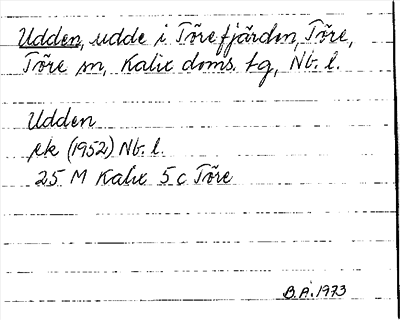 Udden, udde i Törefjärden, Töre,
Töre sn, Kalix doms. tg, Nb. l.
Udden
ek (1952) Nb. l.
25 M Kalix 5 c Töre
B.A. 1973